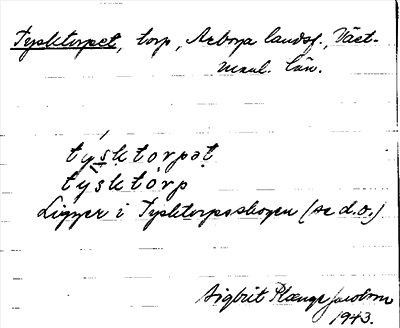 Tysktorpet, torp, Arboga landsf., Väst-
manl. län.
týsktorpət
týsktòrp
Ligger i Tysktorpsskogen (se d.o.)
Sigbrit Plænge Jacobson
1943.